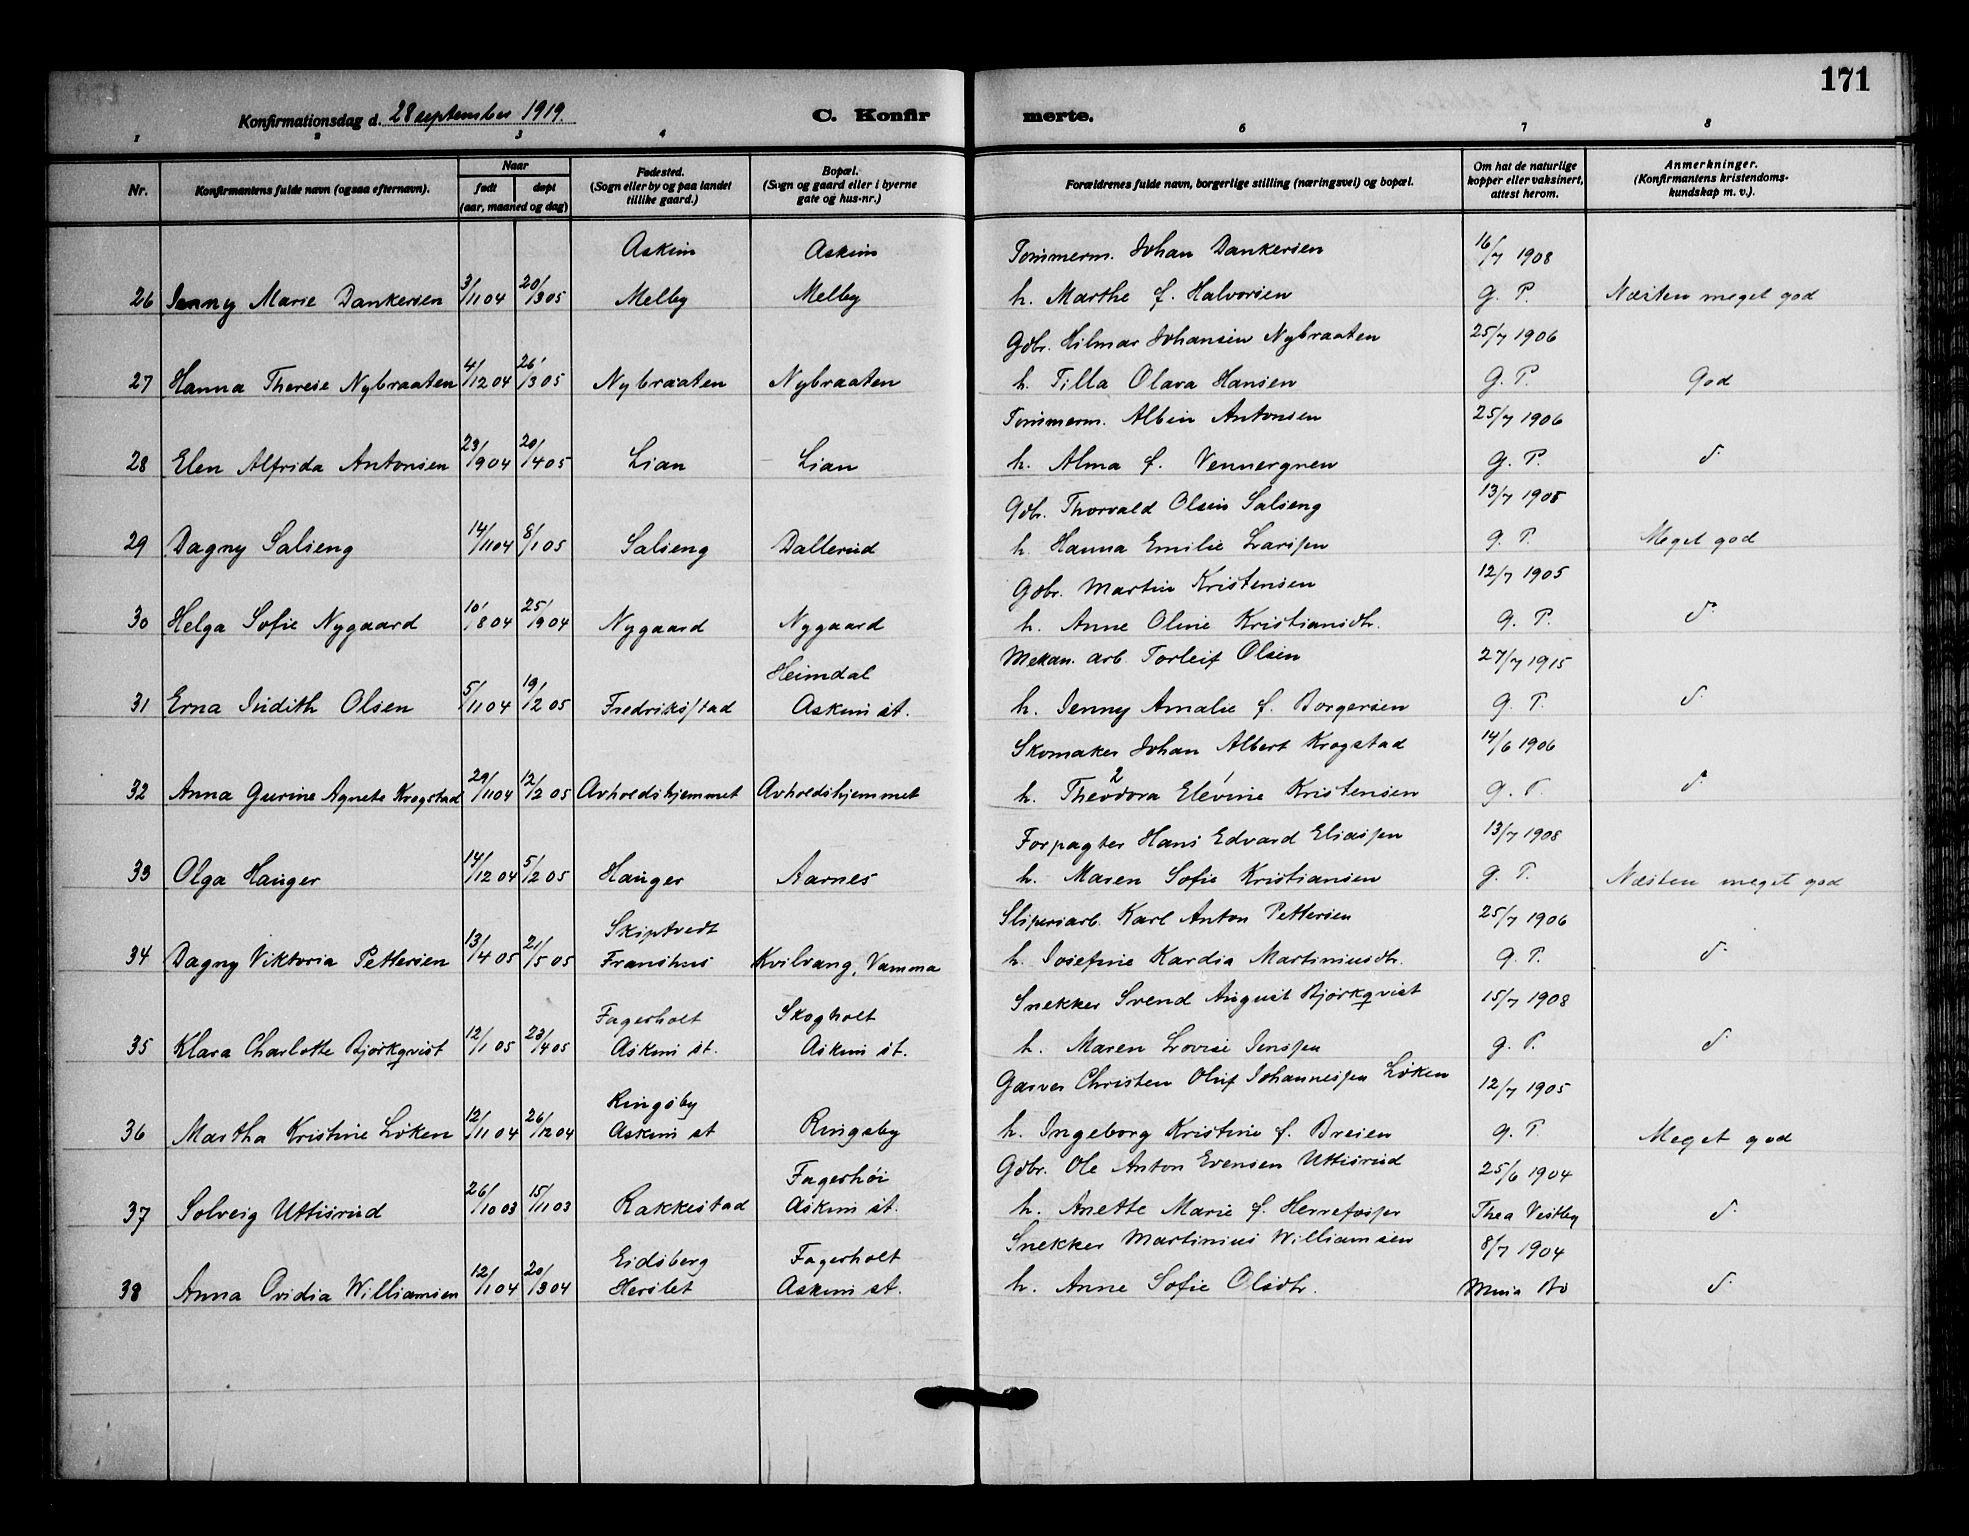 171
Konfirmationsdag d. 28 september 1919. C. Konfirmerte.
1 2 3 4 6 7 8
Nr. Konfirmantens fulde navn (ogsaa efternavn). Naar født døpt (aar, maaned og dag) Fødested. (Sogn eller by og paa landet tillike gaard.) Bopæl. (Sogn og gaard eller i byerne gate og hus-nr.) Forældrenes fulde navn, borgerlige stilling (næringsvei) og bopæl. Om hat de naturlige kopper eller vaksinert, attest herom. Anmerkninger. (Konfirmantens kristendomskundskap m. v.).
Askim Askim Tømmerm. Johan Dankersen 16/7 1908
26 Jenny Marie Dankersen 3/11 04 20/3 05 Melby Melby h. Marthe f. Halvorsen G. P. Næsten meget god
Gbr. Hilmar Johansen Nybraaten 25/7 1906
27 Hanna Therese Nybraaten 4/12 04 26/3 05 Nybraaten Nybraaten h. Tilla Olava Hansen G. P. God
Tømmerm. Albin Antonsen 25/7 1906
28 Elen Alfrida Antonsen 23/9 04 20/4 05 Lian Lian h. Alma f. Vennergren G. P. d.
Gbr. Thorvald Olsen Salseng 13/7 1905
29 Dagny Salseng 14/11 04 8/1 05 Salseng Dallerud h. Hanna Emilie Larssen G. P. Meget god
Gbr. Martin Kristensen 12/7 1905
30 Helga Sofie Nygaard 10/8 04 25/9 04 Nygaard Nygaard h. Anne Oline Kristiansdtr. G. P. d.
Heimdal Mekan. arb. Torleif Olsen 27/7 1915
31 Erna Judith Olsen 5/11 04 19/2 05 Fredriksstad Askim st. h. Jenny Amalie f. Borgersen G. P. d.
Skomaker Johan Albert Krogstad 14/6 1906
32 Anna Gurine Agnete Krogstad 29/11 04 12/2 05 Avholdshjemmet Avholdshjemmet h. Theodora Elevine Kristensen G. P. d.
Forpagter Hans Edvard Eliassen 13/7 1908
33 Olga Hanger 14/12 04 5/2 05 Hanger Aarnes h. Maren Sofie Kristiansen G. P. Næsten meget god
Skiptvedt Sliperiarb. Karl Anton Pettersen 25/7 1906
34 Dagny Viktoria Pettersen 13/4 05 21/5 05 Franshus Kvilvang, Vamma h. Josefine Kardia Martiniusdtr. G. P. d.
Fagerholt Skogholt Snekker Svend August Bjørkqvist 15/7 1908
35 Klara Charlotte Bjørkqvist 12/1 05 23/4 05 Askim st. Askim st. h. Maren Lovise Jenssen G. P. d.
Ringsby Garver Christen Oluf Johannessen Løken 12/7 1905
36 Martha Kristine Løken 12/11 04 26/12 04 Askim st Ringsby h. Ingeborg Kristine f. Breien G. P. Meget god
Fagerhøi Gbr. Ole Anton Evensen Uttisrud 25/6 1904
37 Solveig Uttisrud 26/10 03 15/11 03 Rakkestad Askim st. h. Anette Marie f. Thea Vestby d.
Eidsberg Fagerholt Snekker Martinius Williamsen 8/7 1904
38 Anna Ovidia Williamsen 12/1 04 20/3 04 Herslet Askim st. h. Anne Sofie Olsdtr. Mina Bø d.